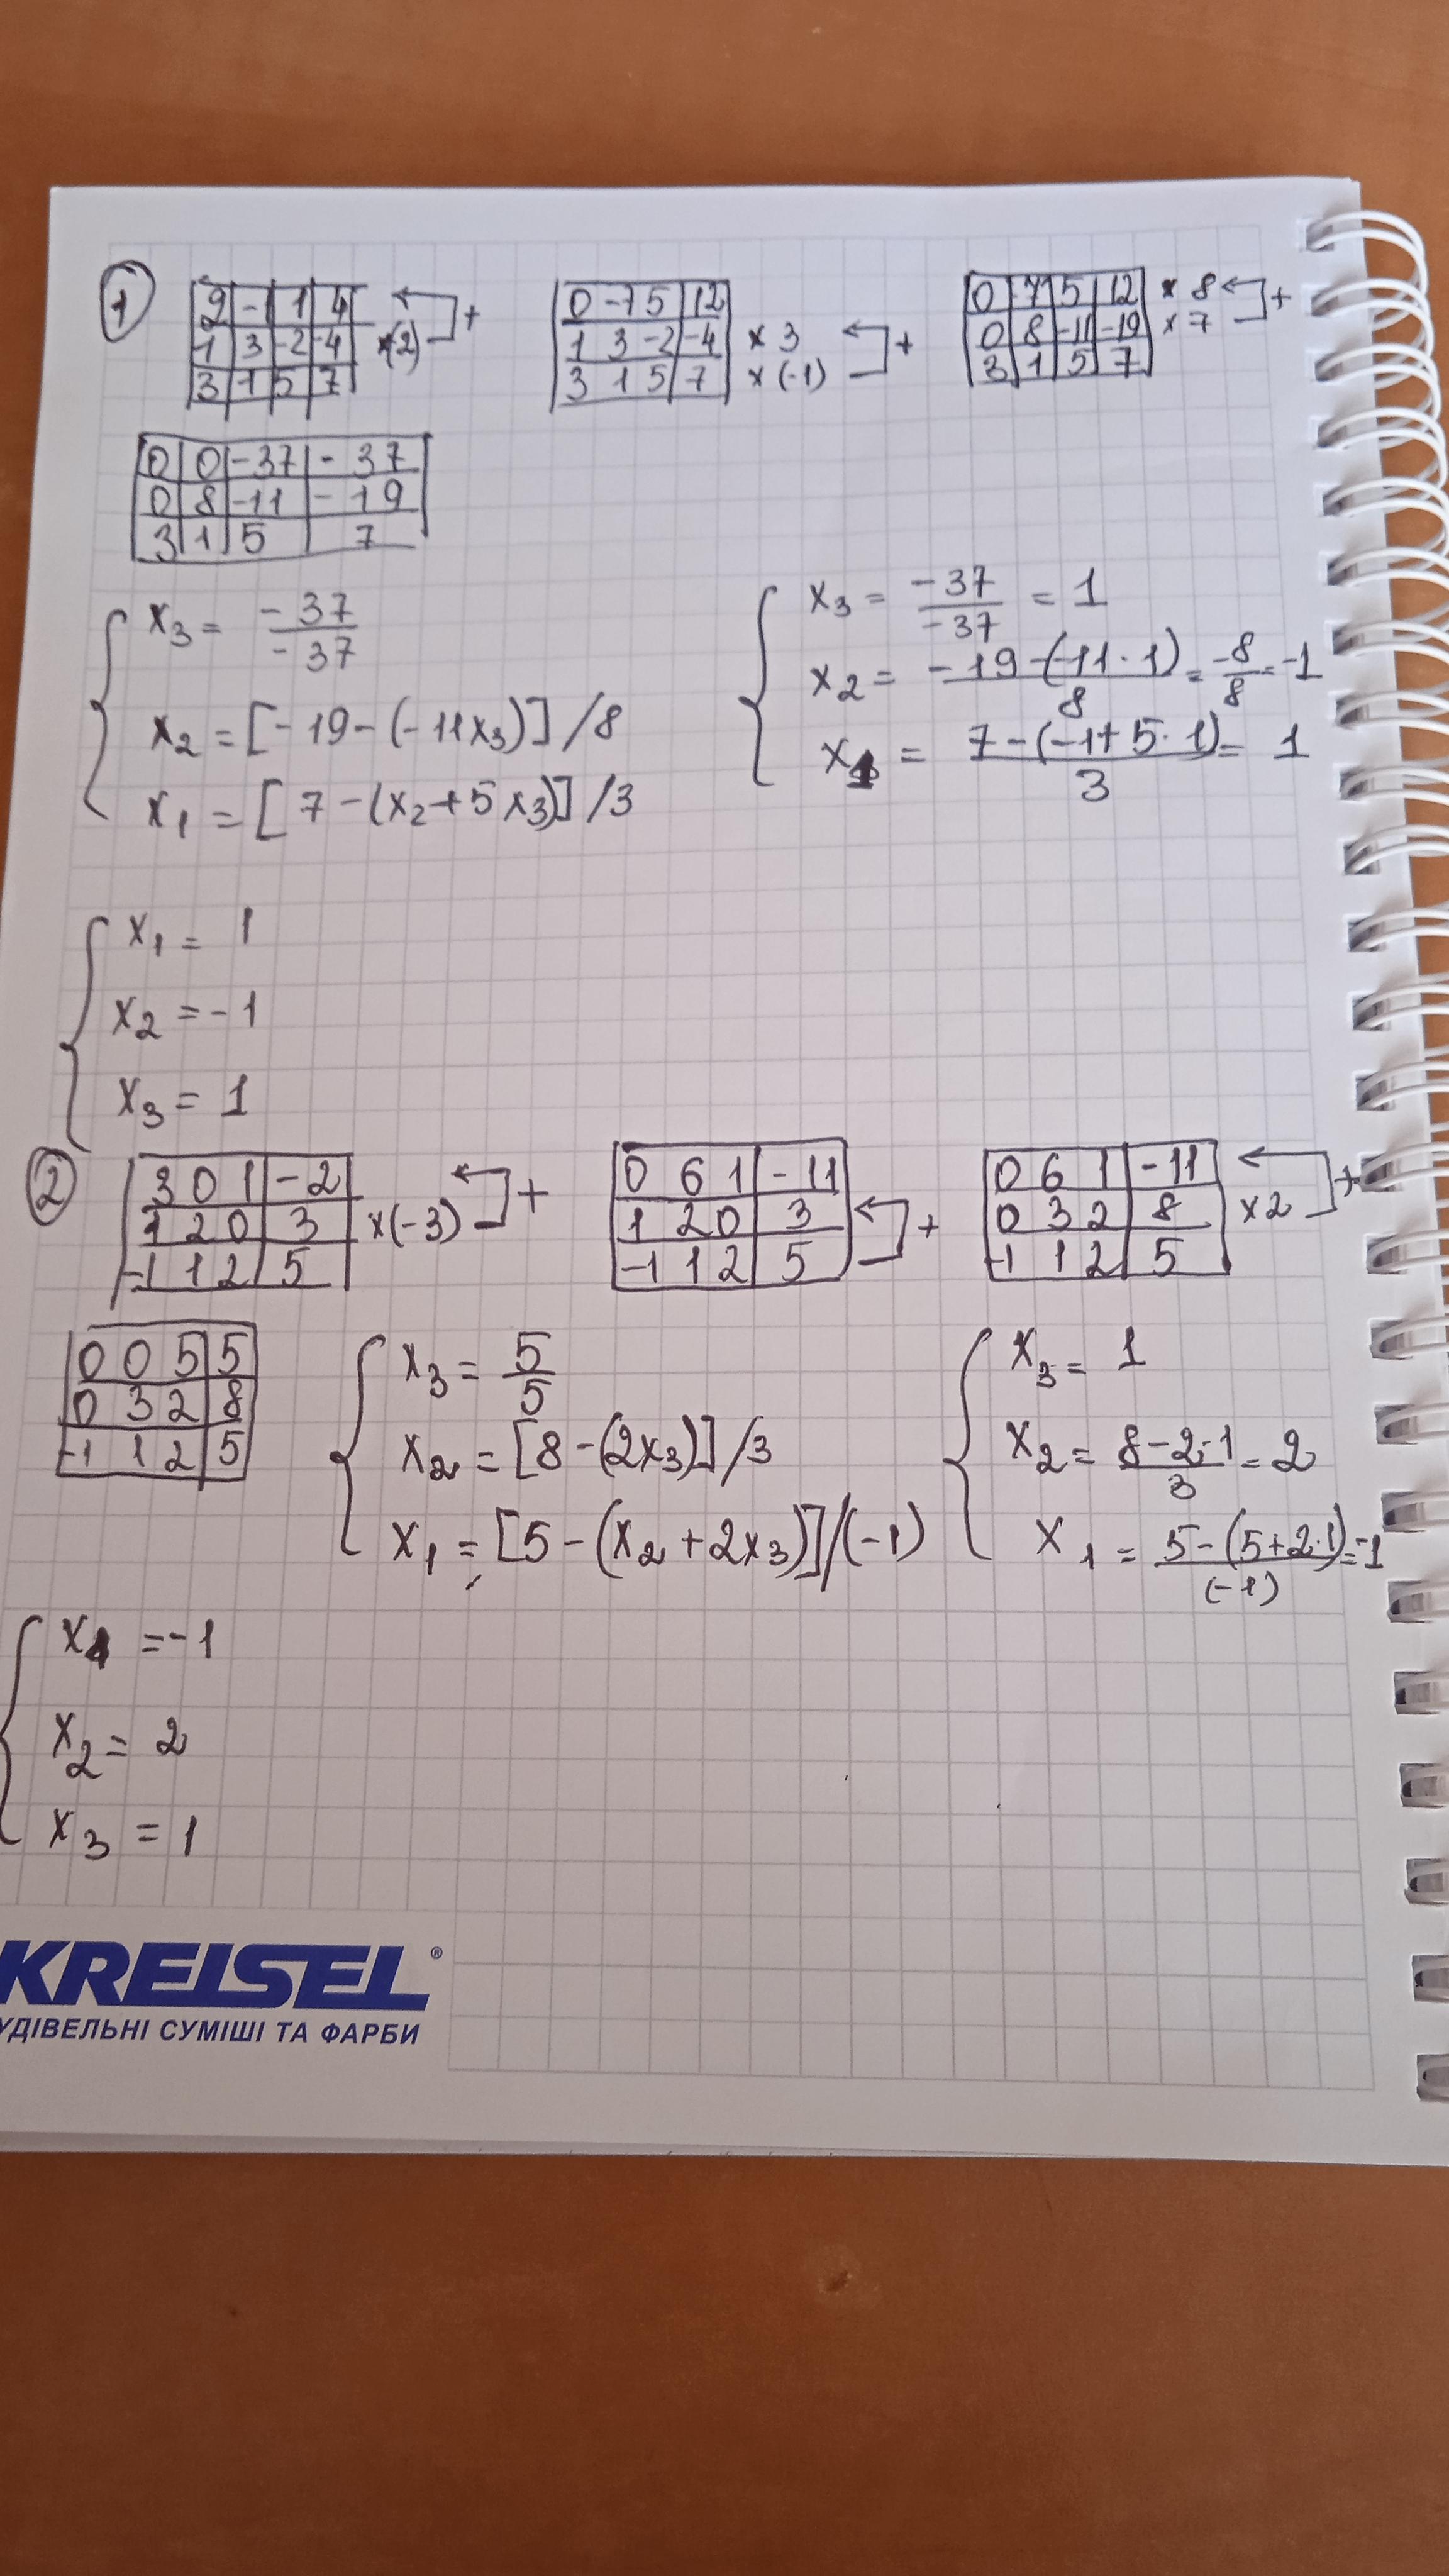 1
2 -1 1 4
1 3 -2 -4 ×(-2) +
3 1 5 7
0 -7 5 12
1 3 -2 -4 × 3
3 1 5 7 × (-1) +
0 -7 5 12 × 8
0 8 -11 -19 × 7 +
3 1 5 7
0 0 -37 -37
0 8 -11 -19
3 1 5 7
x3 = -37/-37
x2 = [-19-(-11x3)]/8
x1 = [7-(x2+5x3)]/3
x3 = -37/-37 = 1
x2 = -19-(-11·1)/8 = -8/8 = -1
x1 = 7-(-1+5·1)/3 = 1
x1 = 1
x2 = -1
x3 = 1
2
3 0 1 -2
1 2 0 3 ×(-3) +
-1 1 2 5
0 6 1 -11
1 2 0 3
-1 1 2 5 +
0 6 1 -11
0 3 2 8 ×2 +
-1 1 2 5
0 0 5 5
0 3 2 8
-1 1 2 5
x3 = 5/5
x2 = [8-(2x3)]/3
x1 = [5-(x2+2x3)]/(-1)
x3 = 1
x2 = 8-2·1/3 = 2
x1 = 5-(5+2·1)/(-1) = -1
x1 = -1
x2 = 2
x3 = 1
KREISEL®
УДІВЕЛЬНІ СУМІШІ ТА ФАРБИ